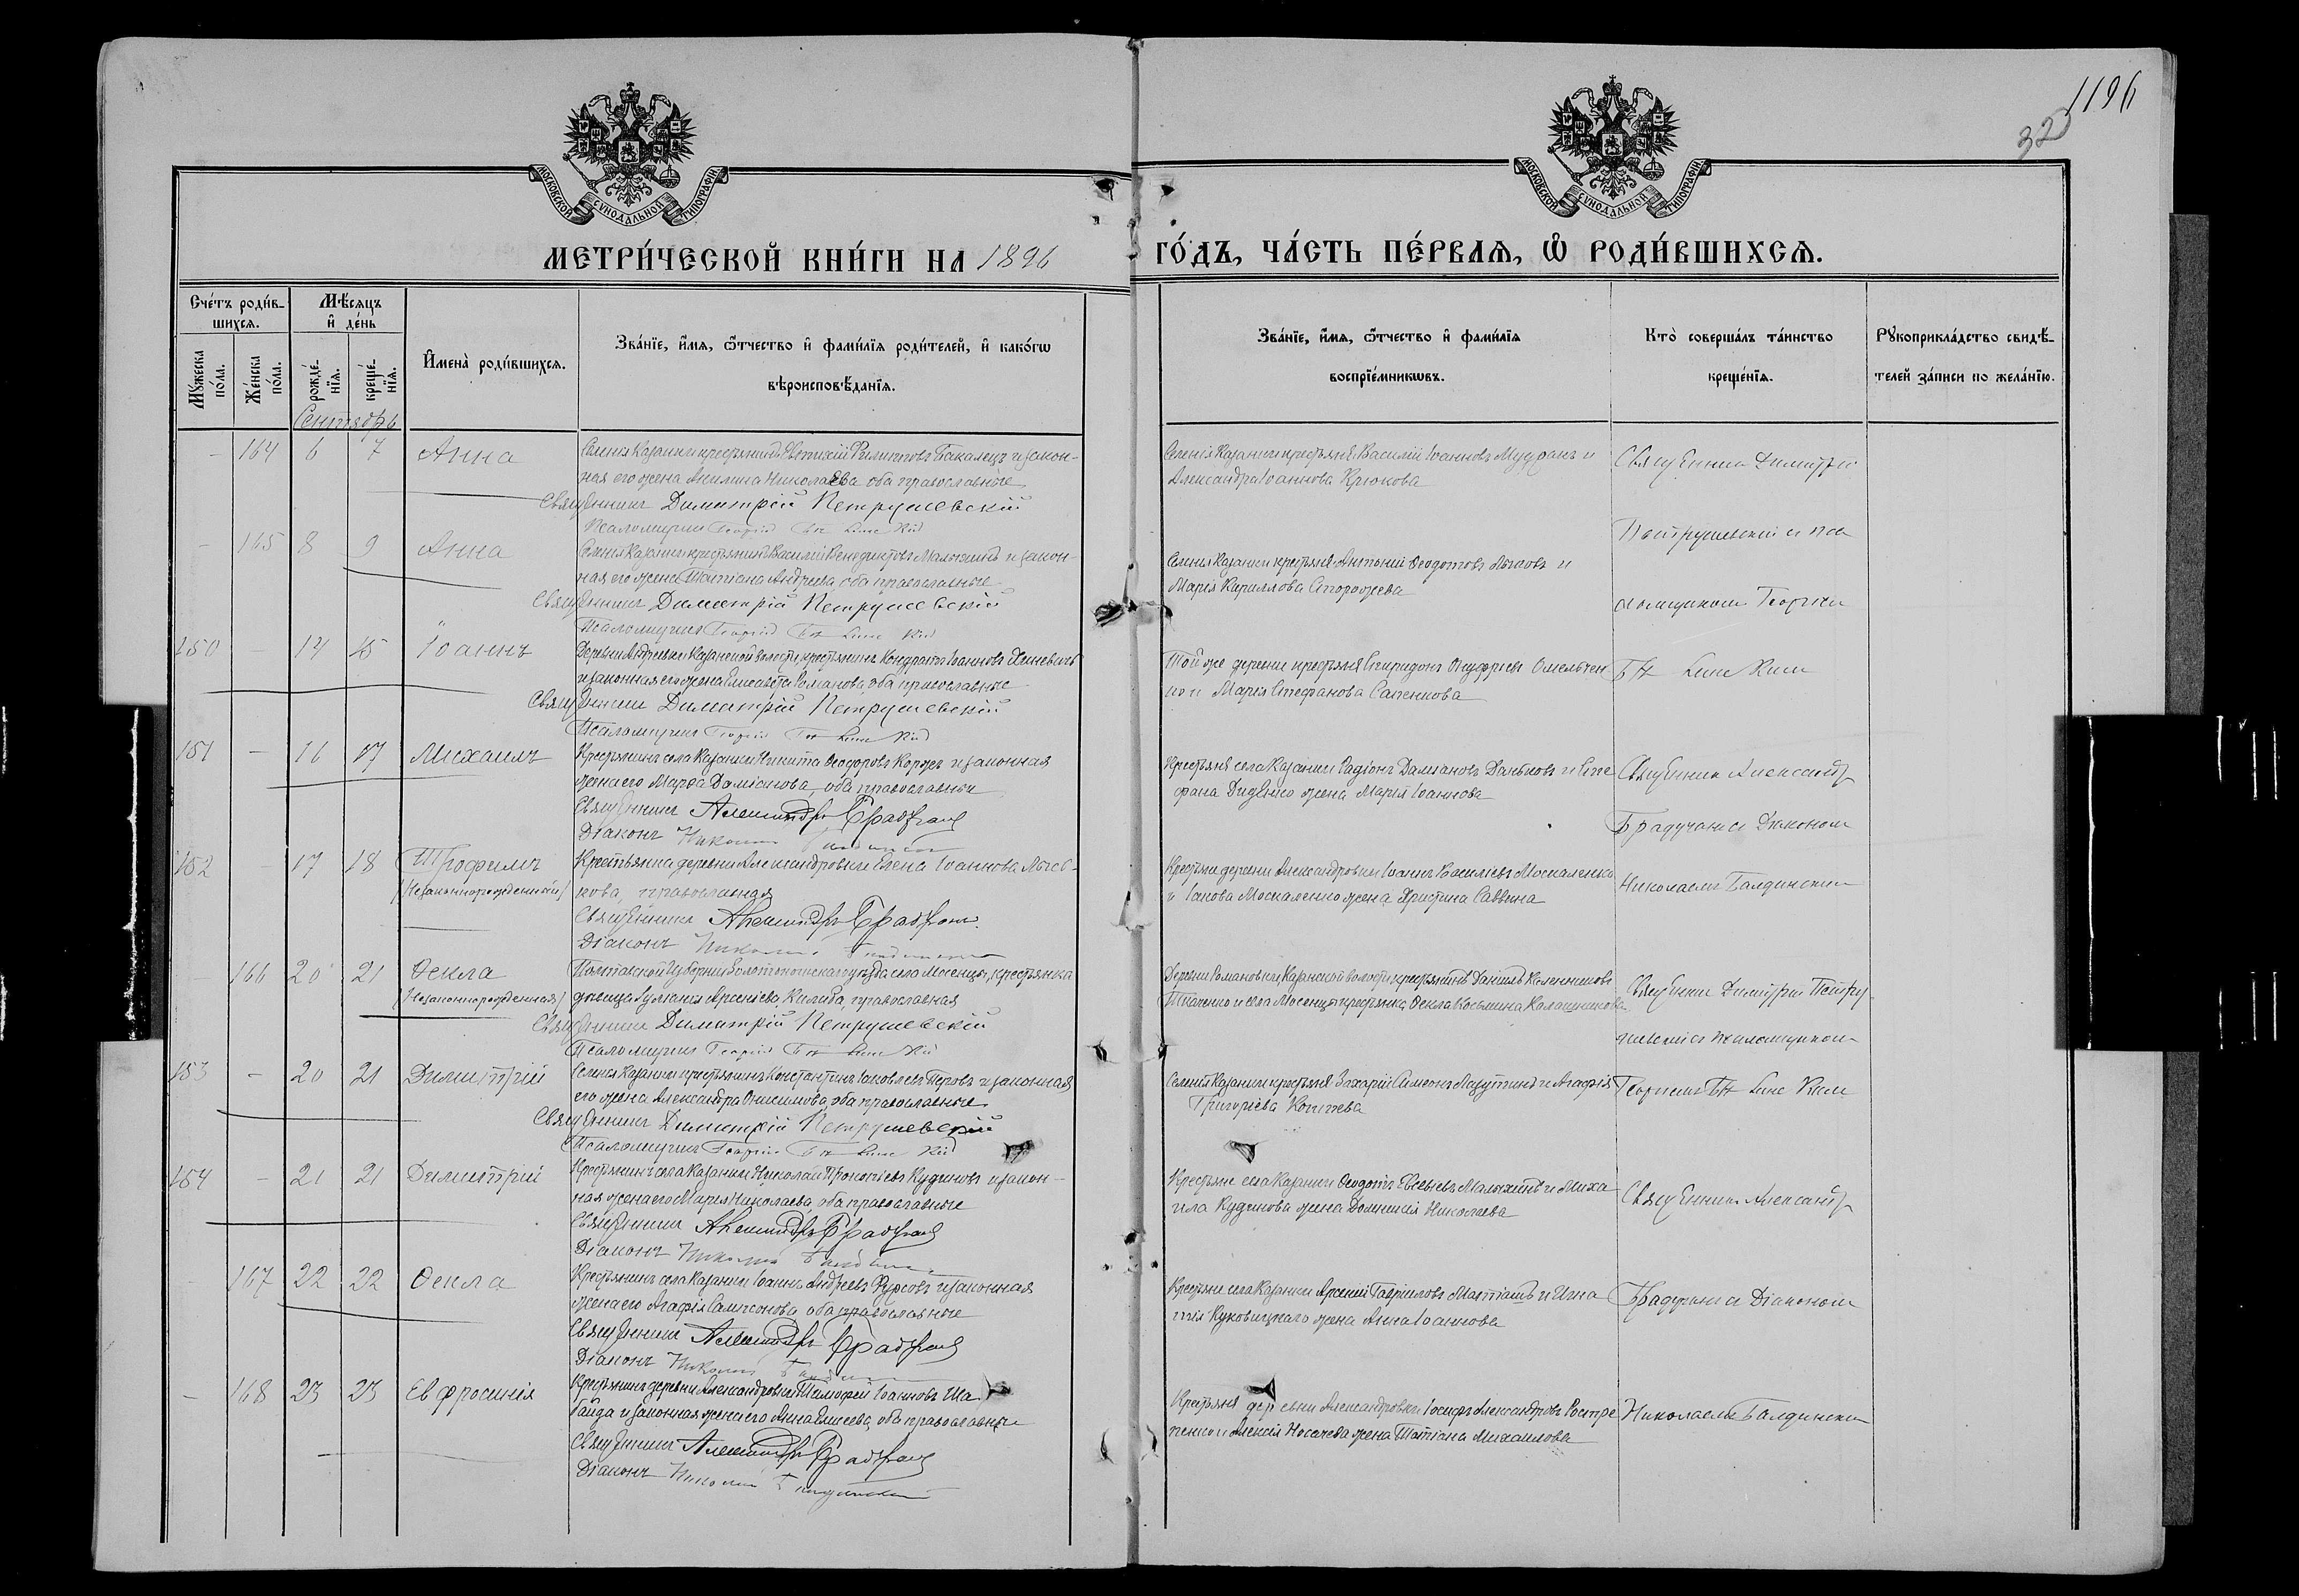 1196
32
МОСКОВСКОЙ СѴНОДАЛЬНОЙ ТИПОГРАФІИ
МОСКОВСКОЙ СѴНОДАЛЬНОЙ ТИПОГРАФІИ
МЕТРИ́ЧЕСКОЙ КНИ́ГИ НА 1896 ГО́ДЪ, ЧА́СТЬ ПЕ́РВАѦ, Ѡ҆ РОДИ́ВШИХСѦ.
Сче́тъ роди́в-
шихсѧ.
Мꙋ́жеска
по́ла.
Же́нска
по́ла.
Мѣ́сѧцъ
и҆ де́нь
рожде́-
нїѧ.
креще́-
нїѧ.
Сентябрь
И҆мена̀ роди́вшихсѧ.
Зва́нїе, и҆́мѧ, ѻ҆́тчество и҆ фами́лїѧ роди́телей, и҆ како́гѡ
вѣроисповѣ́данїѧ.
Зва́нїе, и҆́мѧ, ѻ҆́тчество и҆ фами́лїѧ
воспрїе́мникѡвъ.
Кто̀ соверша́лъ та́инство
креще́нїѧ.
Рꙋкоприкла́дство свидѣ́-
телей за́писи по жела́нїю.
- 164 6 7 Анна
Селенія Казанки крестьянинъ Евтихій Филипповъ Бакалецъ и закон-
ная его жена Акилина Николаева оба православные
Священникъ Димитрій Петрушевскій
Псаломщикъ Георгій
Селенія Казанки крестьяне Василій Іоанновъ и
Александра Іоаннова Крюкова
Священникъ Димитрій
Петрушевскій и пса
ломщикомъ Георгіем
- 165 8 9 Анна
Селенія Казанки крестьянинъ Василій Венедиктовъ Малыхинъ и закон-
ная его жена Татіана Андреева, оба православные
Священникъ Димитрій Петрушевскій
Псаломщикъ Георгій
Селенія Казанки крестьяне Антоній Ѳеодотовъ и
Марія Кириллова Сторожева
150 - 14 15 Іоаннъ
Деревни Андреевки Казанской волости, крестьянинъ Кондратъ Іоанновъ
и законная его жена Елисавета Романова, оба православные
Священникъ Димитрій Петрушевскій
Псаломщикъ Георгій
Той же деревни крестьяне Спиридонъ Онуфріевъ Омельчен
ко и Марія Стефанова Сапенкова
151 - 16 17 Михаилъ
Крестьянинъ села Казанки Никита Ѳеодоровъ Коржъ и законная
жена его Марѳа Даміанова, оба православные
Священникъ Александръ
Діаконъ Николай
Крестьяне села Казанки Родіонъ Даміановъ Даньковъ и Сте
фана Диденко жена Марія Іоаннова
Священникъ Александръ
Діакономъ
152 17 18 Трофимъ
(Незаконнорожденный)
Крестьянка деревни Александровки Елена Іоаннова
кова, православная
Священникъ Александръ
Діаконъ Николай
Крестьяне деревни Александровки Іоаннъ Василіевъ Москаленко
и Іакова Москаленко жена Христина Саввина
Николаемъ Балдинским
- 166 20 21 Ѳекла
(Незаконнорожденная)
Полтавской Губерніи Золотоношскаго уѣзда села Мосенцы, крестьянка
девица Іуліанія Арсеніева Килиба, православная
Священникъ Димитрій Петрушевскій
Псаломщикъ Георгій
Деревни Романовки Казанской волости крестьянинъ Даніилъ
Ткаченко и села Мосенцы крестьянка Ѳекла Косьмина Калашникова
Священникъ Димитрій Петру
шевскій и псаломщиком
153 - 20 21 Димитрій
Селенія Казанки крестьянинъ Константинъ Іаковлевъ Перовъ и законная
его жена Александра Онисимова, оба православные
Священникъ Димитрій Петрушевскій
Псаломщикъ Георгій
Селенія Казанки крестьяне Захарій Симеоновъ Лазуткинъ и Агафія
Григоріева
Георгіемъ
154 - 21 21 Димитрій
Крестьянинъ села Казанки Николай Прокопіевъ Кудиновъ и закон-
ная жена его Марія Николаева, оба православные
Священникъ Александръ
Діаконъ Николай
Крестьяне села Казанки Ѳеодотъ Евсевіевъ Малыхинъ и Миха
ила Кудинова жена Домникія Николаева
Священникъ Александръ
- 167 22 22 Ѳекла
Крестьянинъ села Казанки Іоаннъ Андреевъ Фурсовъ и законная
жена его Агафія Сампсонова, оба православные
Священникъ Александръ
Діаконъ Николай
Крестьяне села Казанки Арсеній Гавріиловъ Матіашъ и Игна
тія Куковицкаго жена Анна Іоаннова
Діакономъ
- 168 23 23 Евфросинія
Крестьянинъ деревни Александровки Тимофей Іоанновъ Ша
байда и законная жена его Анна Елисеева, оба православные
Священникъ Александръ
Діаконъ Николай
Крестьяне деревни Александровки Іосифъ Александровъ
пенко и Алексія Носачева жена Татіана Михаилова
Николаемъ Балдинским